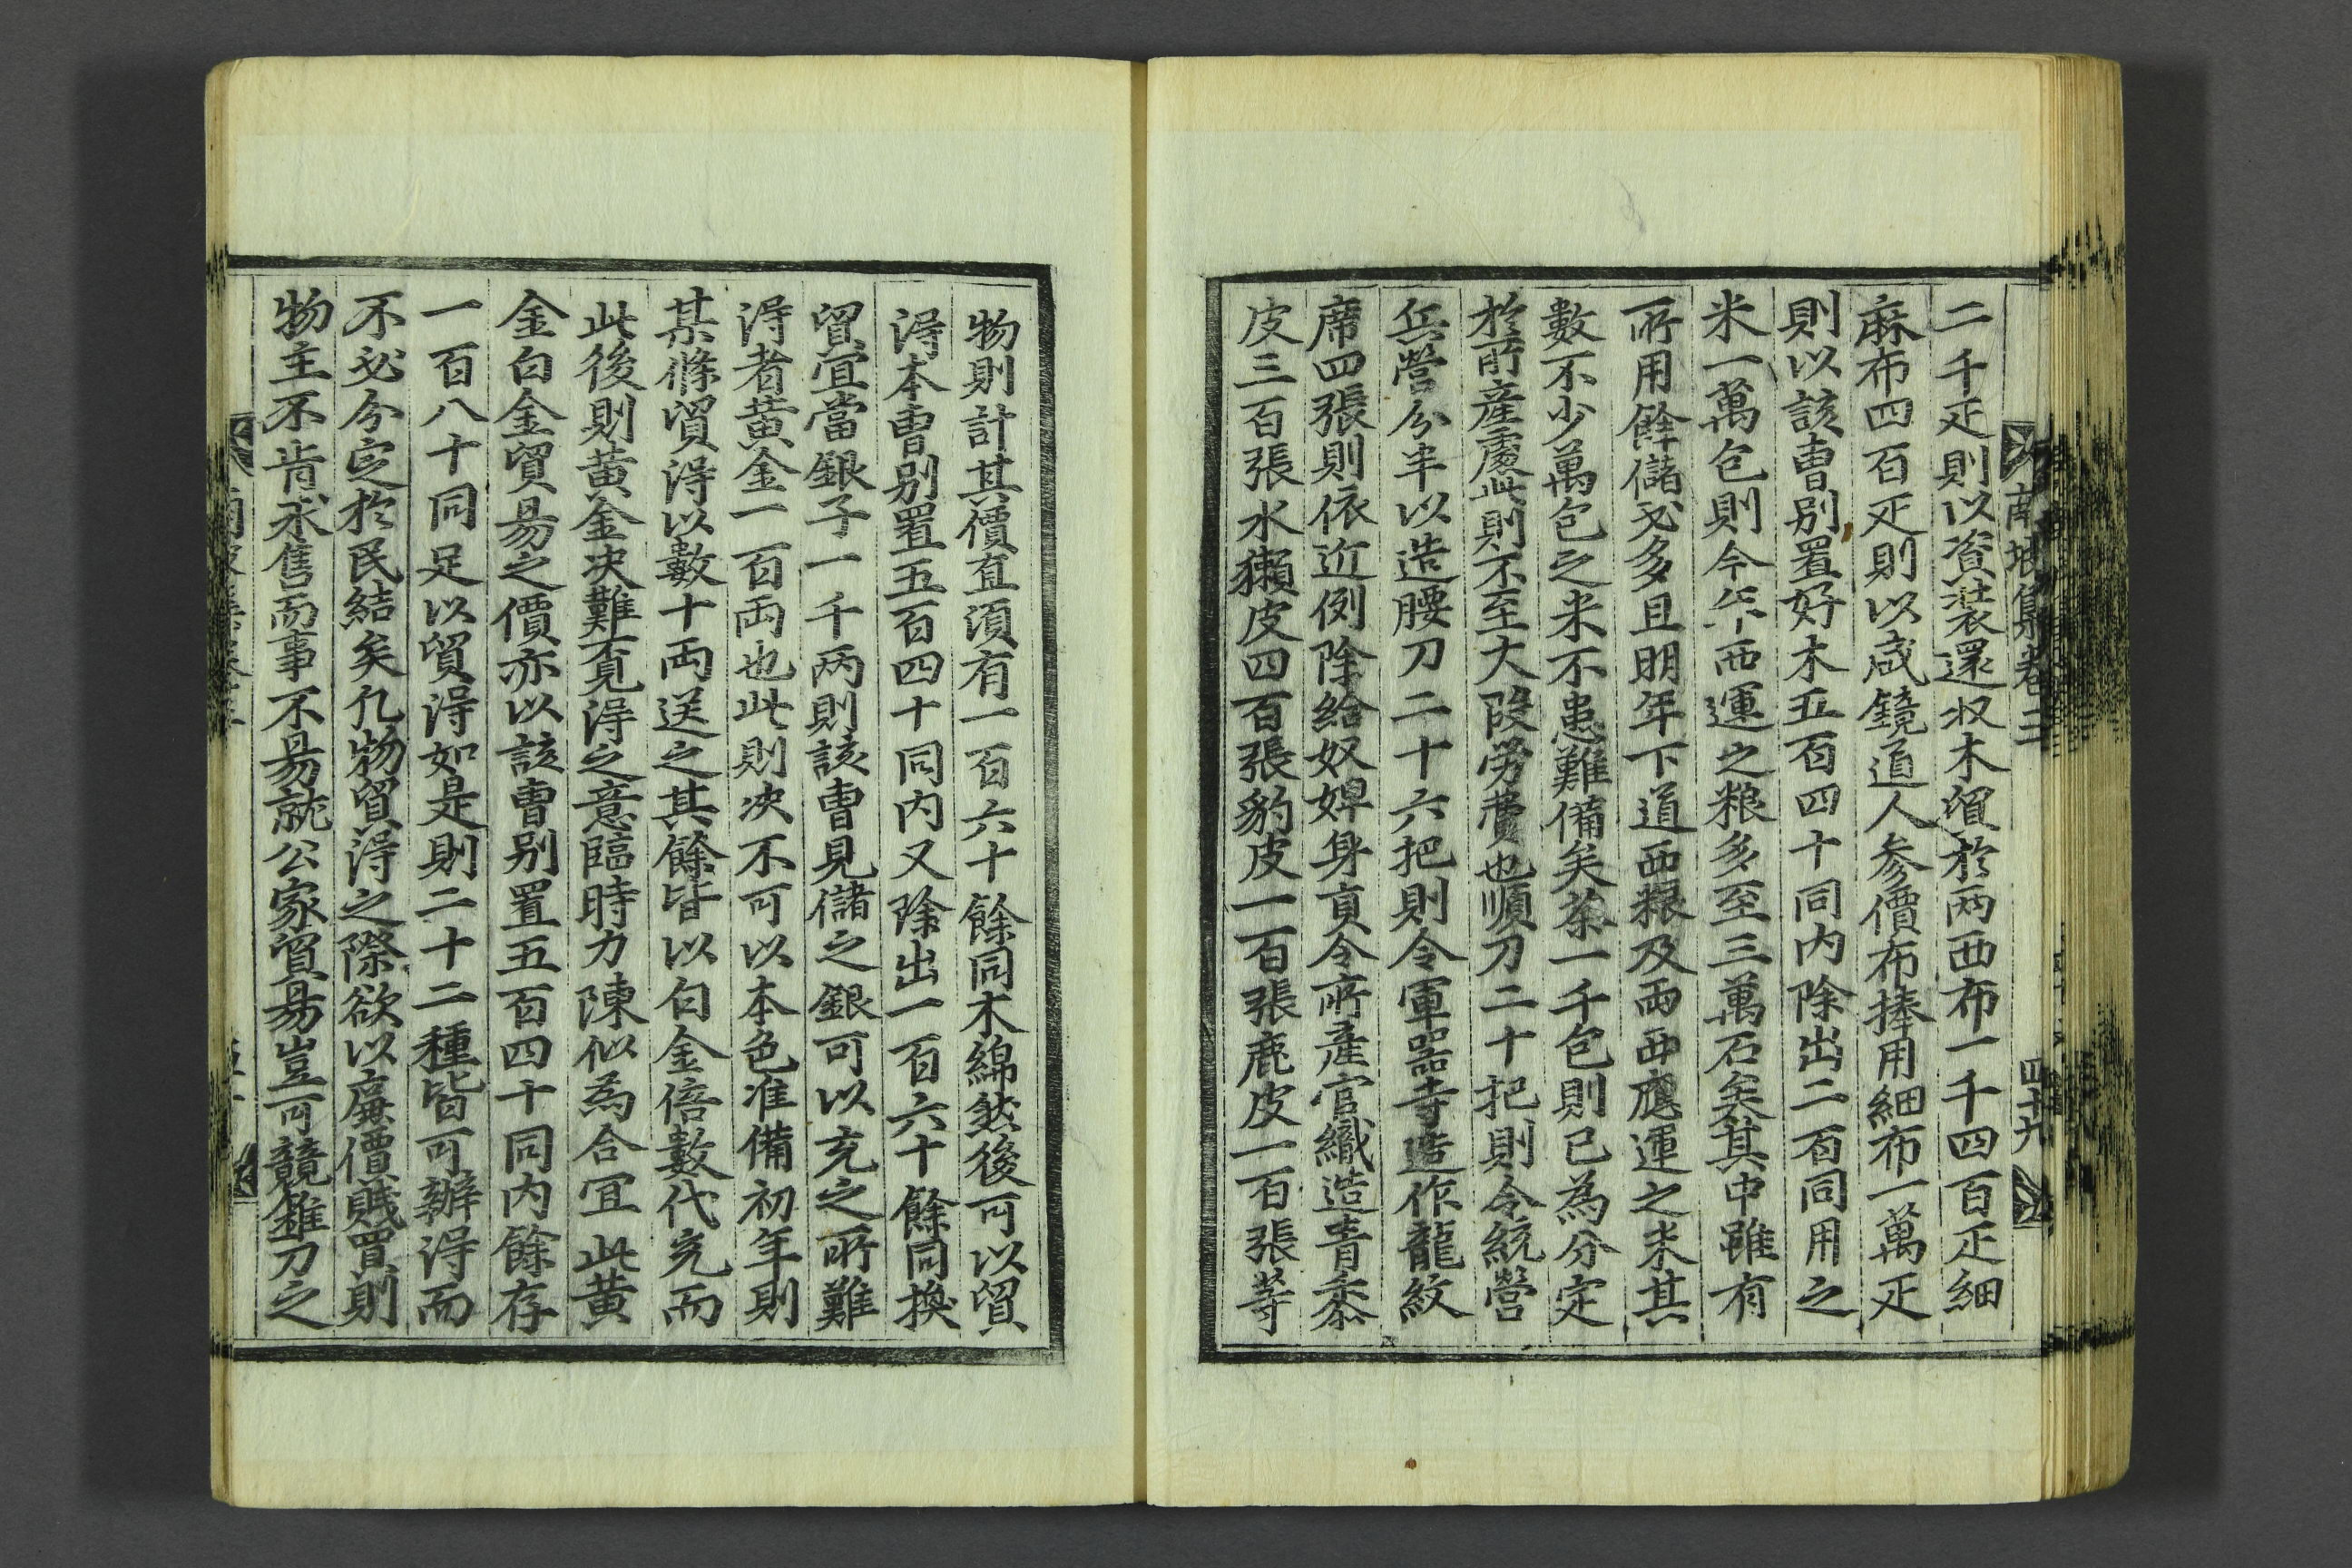 南坡集卷二
四十九
二千疋則以資裝還收木貿於兩西布一千四百疋細
麻布四百疋則以咸鏡道人參價布捧用細布一萬疋
則以該曹別置好木五百四十同內除出二百同用之
米一萬包則今年西運之粮多至三萬石矣其中雖有
所用餘儲必多且明年下道西粮及兩西應運之米其
數不少萬包之米不患難備矣茶一千包則已爲分定
於所産處此則不至大段勞費也順刀二十把則令統營
兵營分半以造腰刀二十六把則令軍器寺造作龍紋
席四張則依近例除給奴婢身貢令所産官織造青黍
皮三百張水獺皮四百張豹皮一百張鹿皮一百張等
物則計其價直須有一百六十餘同木綿然後可以貿
得本曹別置五百四十同內又除出一百六十餘同換
貿宜當銀子一千兩則該曹見儲之銀可以充之所難
得者黃金一百兩也此則決不可以本色准備初年則
某條貿得以數十兩送之其餘皆以白金倍數代充而
此後則黃金決難覓得之意臨時力陳似爲合宜此黃
金白金貿易之價亦以該曹別置五百四十同內餘存
一百八十同足以貿得如是則二十二種皆可辦得而
不必分定於民結矣凡物貿得之際欲以廉價賤買則
物主不肯求售而事不易就公家貿易豈可競錐刀之